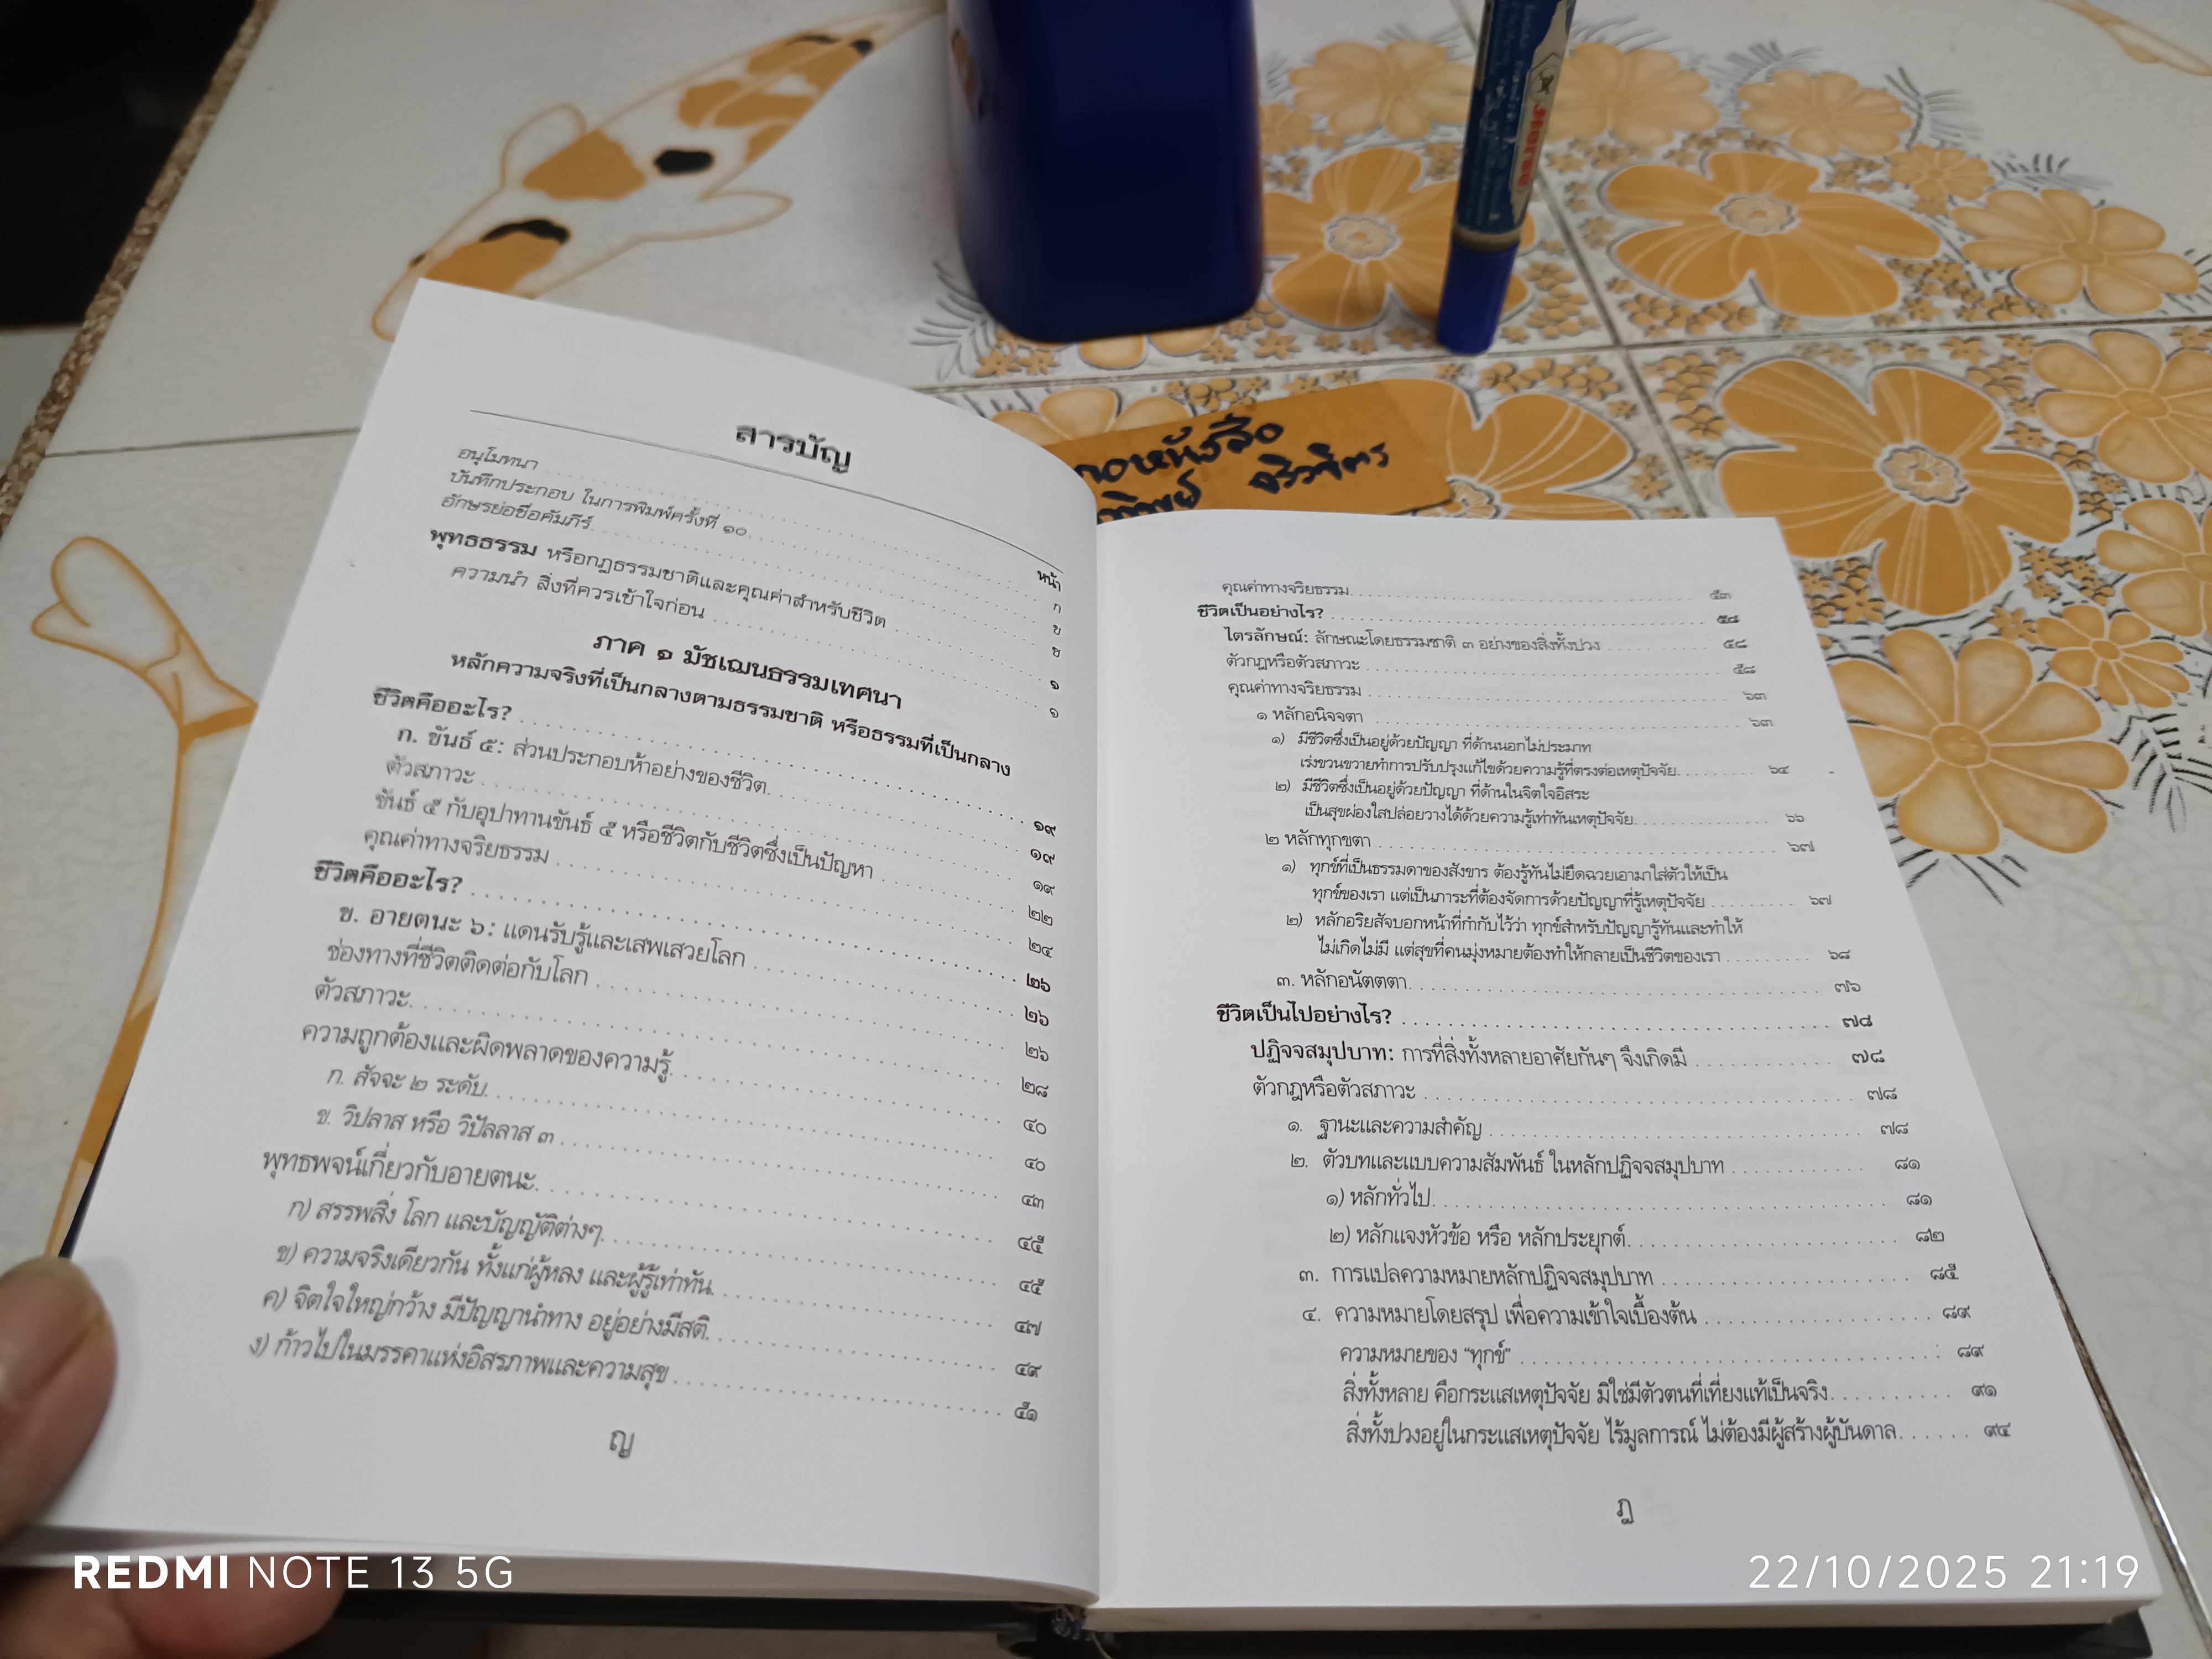 สารบัญ
หน้า
อนุโมทนา ก
บันทึกประกอบ ในการพิมพ์ครั้งที่ ๑๐ ข
อักษรย่อชื่อคัมภีร์ ช
พุทธธรรม หรือกฎธรรมชาติและคุณค่าสำหรับชีวิต ๑
ความนำ สิ่งที่ควรเข้าใจก่อน ๑
ภาค ๑ มัชเฌนธรรมเทศนา
หลักความจริงที่เป็นกลางตามธรรมชาติ หรือธรรมที่เป็นกลาง
ชีวิตคืออะไร? ๑๙
ก. ขันธ์ ๕: ส่วนประกอบห้าอย่างของชีวิต ๑๙
ตัวสภาวะ ๑๙
ขันธ์ ๕ กับอุปาทานขันธ์ ๕ หรือชีวิตกับชีวิตซึ่งเป็นปัญหา ๒๒
คุณค่าทางจริยธรรม ๒๔
ชีวิตคืออะไร? ๒๖
ข. อายตนะ ๖: แดนรับรู้และเสพเสวยโลก ๒๖
ช่องทางที่ชีวิตติดต่อกับโลก ๒๖
ตัวสภาวะ ๒๘
ความถูกต้องและผิดพลาดของความรู้ ๔๐
ก. สัจจะ ๒ ระดับ ๔๐
ข. วิปลาส หรือ วิปัลลาส ๓ ๔๓
พุทธพจน์เกี่ยวกับอายตนะ ๔๕
ก) สรรพสิ่ง โลก และบัญญัติต่างๆ ๔๕
ข) ความจริงเดียวกัน ทั้งแก่ผู้หลง และผู้รู้เท่าทัน ๔๗
ค) จิตใจใหญ่กว้าง มีปัญญานำทาง อยู่อย่างมีสติ ๔๙
ง) ก้าวไปในมรรคาแห่งอิสรภาพและความสุข ๕๑
ญ
คุณค่าทางจริยธรรม ๕๓
ชีวิตเป็นอย่างไร? ๕๘
ไตรลักษณ์: ลักษณะโดยธรรมชาติ ๓ อย่างของสิ่งทั้งปวง ๕๘
ตัวกฎหรือตัวสภาวะ ๕๘
คุณค่าทางจริยธรรม ๖๓
๑ หลักอนิจจตา ๖๓
๑) มีชีวิตซึ่งเป็นอยู่ด้วยปัญญา ที่ด้านนอกไม่ประมาท
เร่งขวนขวายทำการปรับปรุงแก้ไขด้วยความรู้ที่ตรงต่อเหตุปัจจัย ๖๔
๒) มีชีวิตซึ่งเป็นอยู่ด้วยปัญญา ที่ด้านในจิตใจอิสระ
เป็นสุขผ่องใสปล่อยวางได้ด้วยความรู้เท่าทันเหตุปัจจัย ๖๖
๒ หลักทุกขตา ๖๗
๑) ทุกข์ที่เป็นธรรมดาของสังขาร ต้องรู้ทันไม่ยึดฉวยเอามาใส่ตัวให้เป็น
ทุกข์ของเรา แต่เป็นภาระที่ต้องจัดการด้วยปัญญาที่รู้เหตุปัจจัย ๖๗
๒) หลักอริยสัจบอกหน้าที่กำกับไว้ว่า ทุกข์สำหรับปัญญารู้ทันและทำให้
ไม่เกิดไม่มี แต่สุขที่คนมุ่งหมายต้องทำให้กลายเป็นชีวิตของเรา ๖๘
๓. หลักอนัตตตา ๗๖
ชีวิตเป็นไปอย่างไร? ๗๘
ปฏิจจสมุปบาท: การที่สิ่งทั้งหลายอาศัยกันๆ จึงเกิดมี ๗๘
ตัวกฎหรือตัวสภาวะ ๗๘
๑. ฐานะและความสำคัญ ๗๘
๒. ตัวบทและแบบความสัมพันธ์ ในหลักปฏิจจสมุปบาท ๘๑
๑) หลักทั่วไป ๘๑
๒) หลักแจงหัวข้อ หรือ หลักประยุกต์ ๘๒
๓. การแปลความหมายหลักปฏิจจสมุปบาท ๘๕
๔. ความหมายโดยสรุป เพื่อความเข้าใจเบื้องต้น ๘๙
ความหมายของ “ทุกข์” ๘๙
สิ่งทั้งหลาย คือกระแสเหตุปัจจัย มิใช่มีตัวตนที่เที่ยงแท้เป็นจริง ๙๑
สิ่งทั้งปวงอยู่ในกระแสเหตุปัจจัย ไร้มูลการณ์ ไม่ต้องมีผู้สร้างผู้บันดาล ๙๔
ฎ
REDMI NOTE 13 5G
22/10/2025 21:19